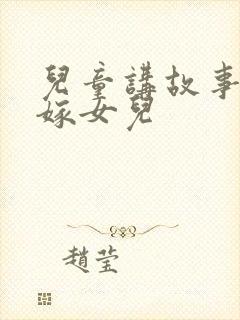 兒童講故事
嫁女兒
趙莹